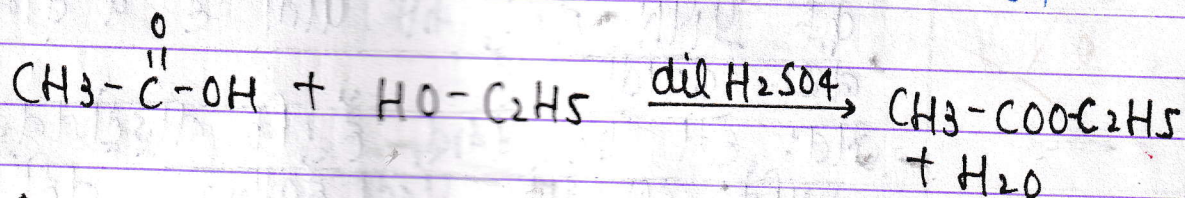 O
||
CH3-C-OH + HO-C2H5 dil H2SO4 → CH3-COOC2H5
+ H2O